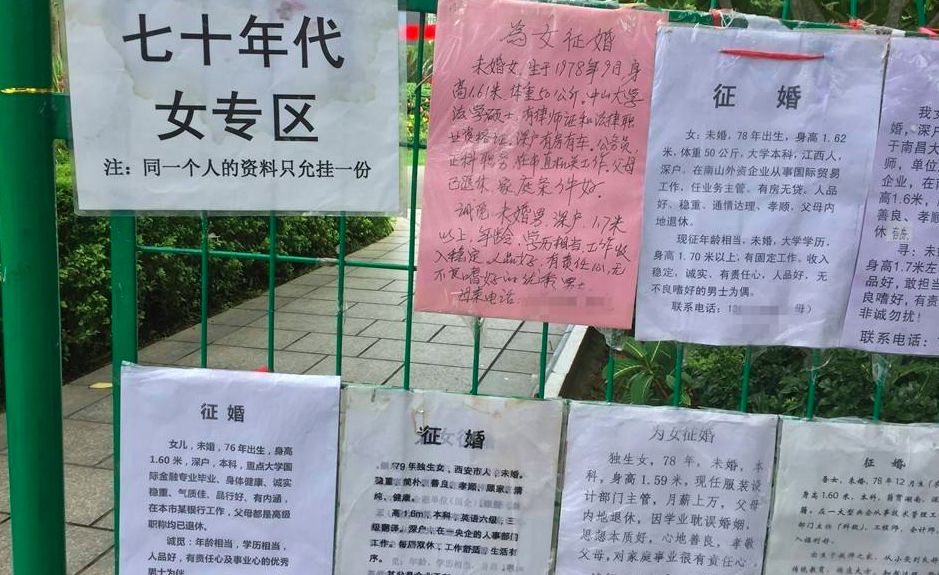 七十年代
女专区
注：同一个人的资料只允挂一份
为女征婚
未婚女，生于1978年9月身
高1.61米，体重50公斤。中山大学
法学硕士，有律师证和法律职
业资格证。深户有房有车。公务员，
正科职务，在市直机关工作，父母
已退休，家庭条件好。
诚觅：未婚男，深户，1.7米
以上，年龄、学历相当，工作收
入稳定，人品好，有责任心，无
不良嗜好的优秀男士
母亲电话：
征 婚
女：未婚，78年出生，身高1.62
米，体重50公斤，大学本科，江西人，
深户。在南山外资企业从事国际贸易
工作，任业务主管。有房无贷。人品
好、稳重、通情达理、孝顺，父母内
地退休。
现征年龄相当，未婚，大学学历，
身高1.70米以上，有固定工作。收入
稳定，诚实、有责任心，人品好，无
不良嗜好的男士为偶。
联系电话：13 母）
我女
婚，深户
于南昌大
师，单位
企业，在南
高1.6米，
善良、孝
休
寻：未
身高1.7米左
好，敢担当
良嗜好，有
非诚勿扰！
联系电话：
征 婚
女儿，未婚，76年出生，身高
1.60米，深户，本科，重点大学国
际金融专业毕业、身体健康、诚实
稳重、气质佳、品行好、有内涵，
在本市某银行工作，父母都是高级
职称均已退休。
诚觅：年龄相当，学历相当，
人品好，有责任心及事业心的优秀
男士为伴
征 婚
79年独生女，西安市人，未婚。
善良
孝顺、顾家
纯、健康。
高1.6m，本科，英语六级，三
级翻译。深户，在央企的人事部门
工作。每周双休，工作舒适，生活有
序。
为女征婚
独生女，78年，未婚，本
科，身高1.59米，现任服装设
计部门主管，月薪上万，父母
内地退休，因学业耽误婚姻，
思想本质好，心地善良，孝敬
父母，对家庭事业很有责任心
征 婚
吾女，未婚，78年12月生（
身高1.60米，本科，